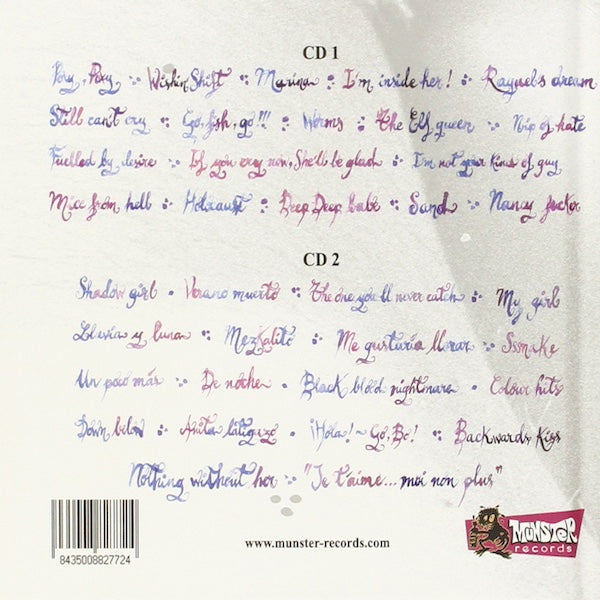 CD 1
Poxy, Poxy Wishin' Shift Marina I'm inside her! Raquel's dream
Still can't cry Go, fish, go!!! Worms The Elf queen Nip of hate
Fuelled by desire If you cry now, She'll be glad I'm not your kind of guy
Mice from hell Holocaust Deep Deep babe Sand Nancy fucker
CD 2
Shadow girl Verano muerto The one you'll never catch My girl
Lluvia y luna Mezkalito Me gustaría llorar Sssnake
Un poco más De noche Black blood nightmare Colour hits
Down below Anita latigazo ¡Hola! ~ Go, Bo! Backwards Kiss
Nothing without her "Je t'aime... moi non plus"
8435008827724
www.munster-records.com
MUNSTER
records